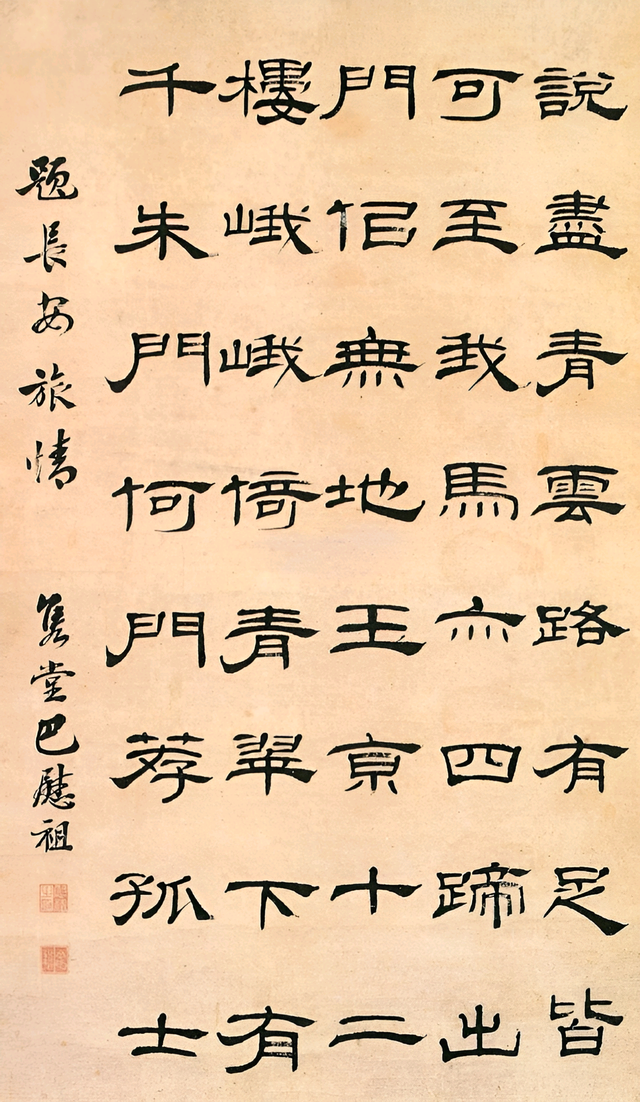 說盡青雲路有足皆
可至我馬亦四蹄出
門佀無地王京十二
樓峨峨倚青翠下有
千朱門何門荐孤士
題長安旅情 雋堂巴慰祖